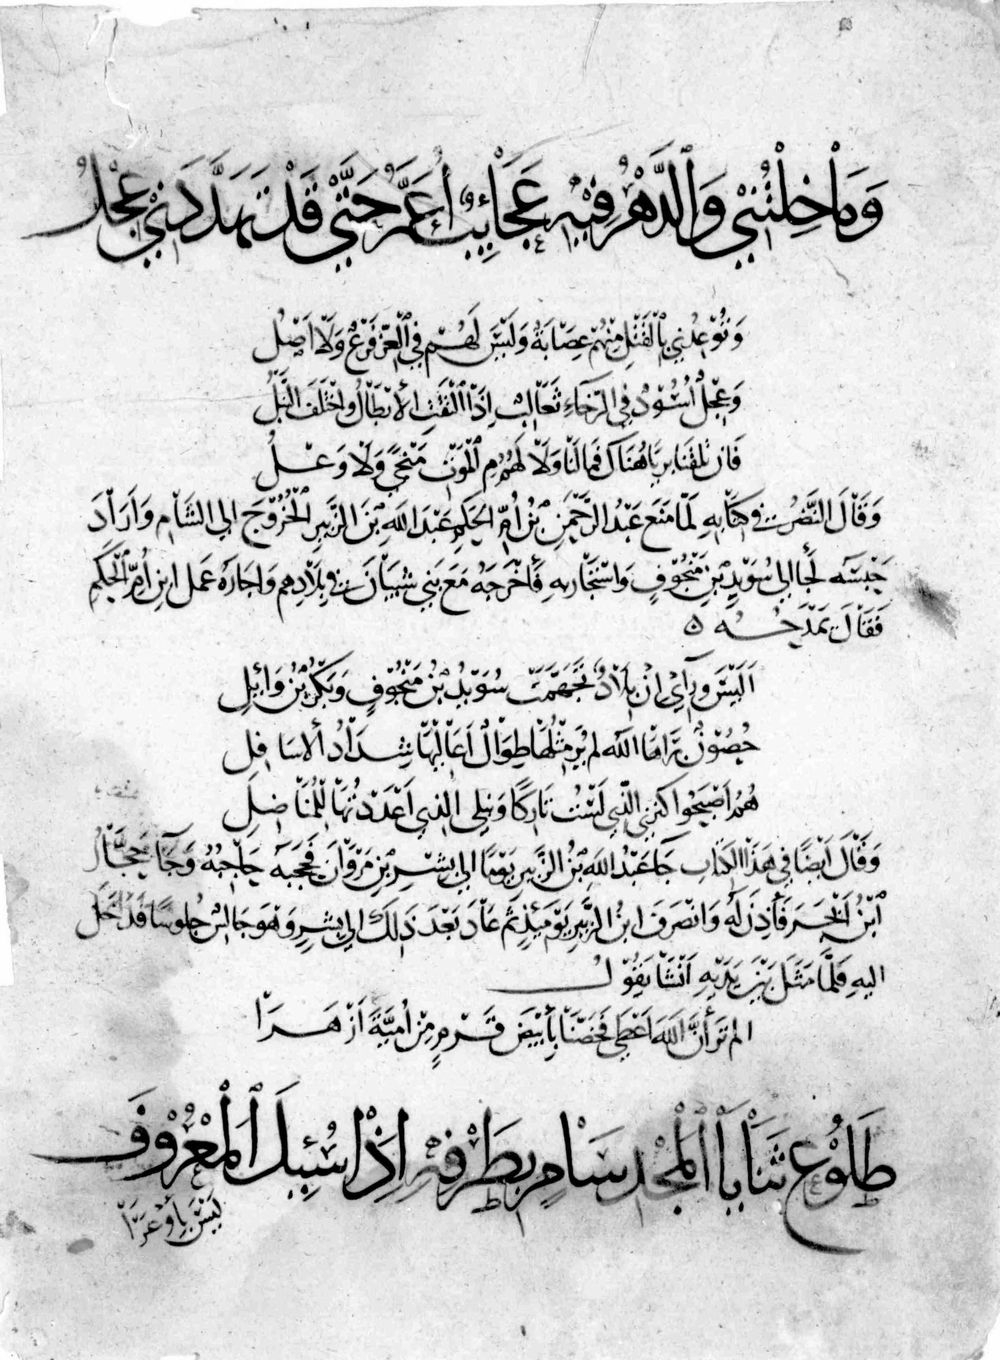 وَمَا خِلْتُنِي وَالدَّهْرُ فِيهِ عَجَائِبٌ أُعَمَّرُ حَتَّى قَدْ تَهَدَّدَنِي عِجْلُ
وَتُوْعِدُنِي بِالْقَتْلِ مِنْهُمْ عِصَابَةٌ وَلَيْسَ لَهُمْ فِي الْعِزِّ فَرْعٌ وَلَا اَصْلُ
وَعِجْلٌ اُسُوْدٌ فِي الرَّخَاءِ ثَعَالِبٌ اِذَا الْتَقَتِ الأَبْطَالُ وَاخْتَلَفَ النَّبْلُ
فَاِن تَلْقَنَا بِرِبَاهُنَاكَ فَمَا لَنَا وَلَا لَهُمُ مِ الْمَوْتِ مَنْجًى وَلَا وَعْلُ
وَقَالَ النَّضْرُ فِي كِتَابِهِ لَمَّا مَنَعَ عَبْدُ الرَّحْمَنِ بْنُ اُمِّ الْحَكَمِ عَبْدَ اللَّهِ بْنَ الزَّبِيرِ الْخُرُوْجَ الى الشَّامِ وَاَرَادَ
حَبْسَهُ لَجَأَ الى سُوَيْدِ بْنِ مَنْجُوْفٍ وَاسْتَجَارَ بِهِ فَأَخْرَجَهُ مَعَ بَنِي شَيْبَانَ فِي بِلَادِهِم وَاجَازَهُ عَمَلَ ابْنِ اُمِّ الْحَكَمِ
فَقَالَ يَمْدَحُهُ ه
اَلَيْسَ وَرَآئِي اِنْ بِلَادٌ تَجَهَّمَتْ سُوَيْدُ بْنُ مَنْجُوْفٍ وَبَكْرُ بْنُ وَائِلِ
حُصُوْنٌ بَرَاهَا اللَّه لم يُرَ مِثْلُهَا طِوَالٌ اَعَالِيْهَا شِدَادُ الأسَافِلِ
هُمُ اَصْبَحُوا كَنْزِي الَّذِي لَسْتُ تَارِكًا وَنَبْلِي الَّذِي اَعْدَدْتُهَا لِلْمُنَاضِلِ
وَقَالَ اَيْضًا فِي هَذَا الْكِتَابِ جَآءَ عَبْدُ اللَّهِ بْنُ الزَّبِيرِ يَوْمًا الى بِشْرِ بْنِ مَرْوَانَ فَحَجَبَهُ حَاجِبُهُ وَجَآءَ حَجَّارُ
ابْنُ اَبْجَرَ فَأُذِنَ لَهُ وَانْصَرَفَ ابْنُ الزَّبِيرِ يَوْمَئِذٍ ثُمَّ عَادَ بَعْدَ ذَلِكَ الى بِشْرٍ وَهُوَ جَالِسٌ جُلُوسًا فَدَخَلَ
اليهِ فَلَمَّا مَثَلَ بَيْنَ يَدَيْهِ اَنْشَأَ يَقُوْلُ
الم تَرَ أَنَّ اللَّهَ اَعْطَى فَخَصَّنَا بِأَبْيَضَ قَرْمٍ مِنْ اُمَيَّةَ اَزْهَرَا
طَلُوْعِ ثَنَايَا الْمَجْدِ سَامٍ بِطَرْفِهِ اِذَا سُئِلَ الْمَعْرُوْفَ
لَيْسَ بِأَوْعَرَا